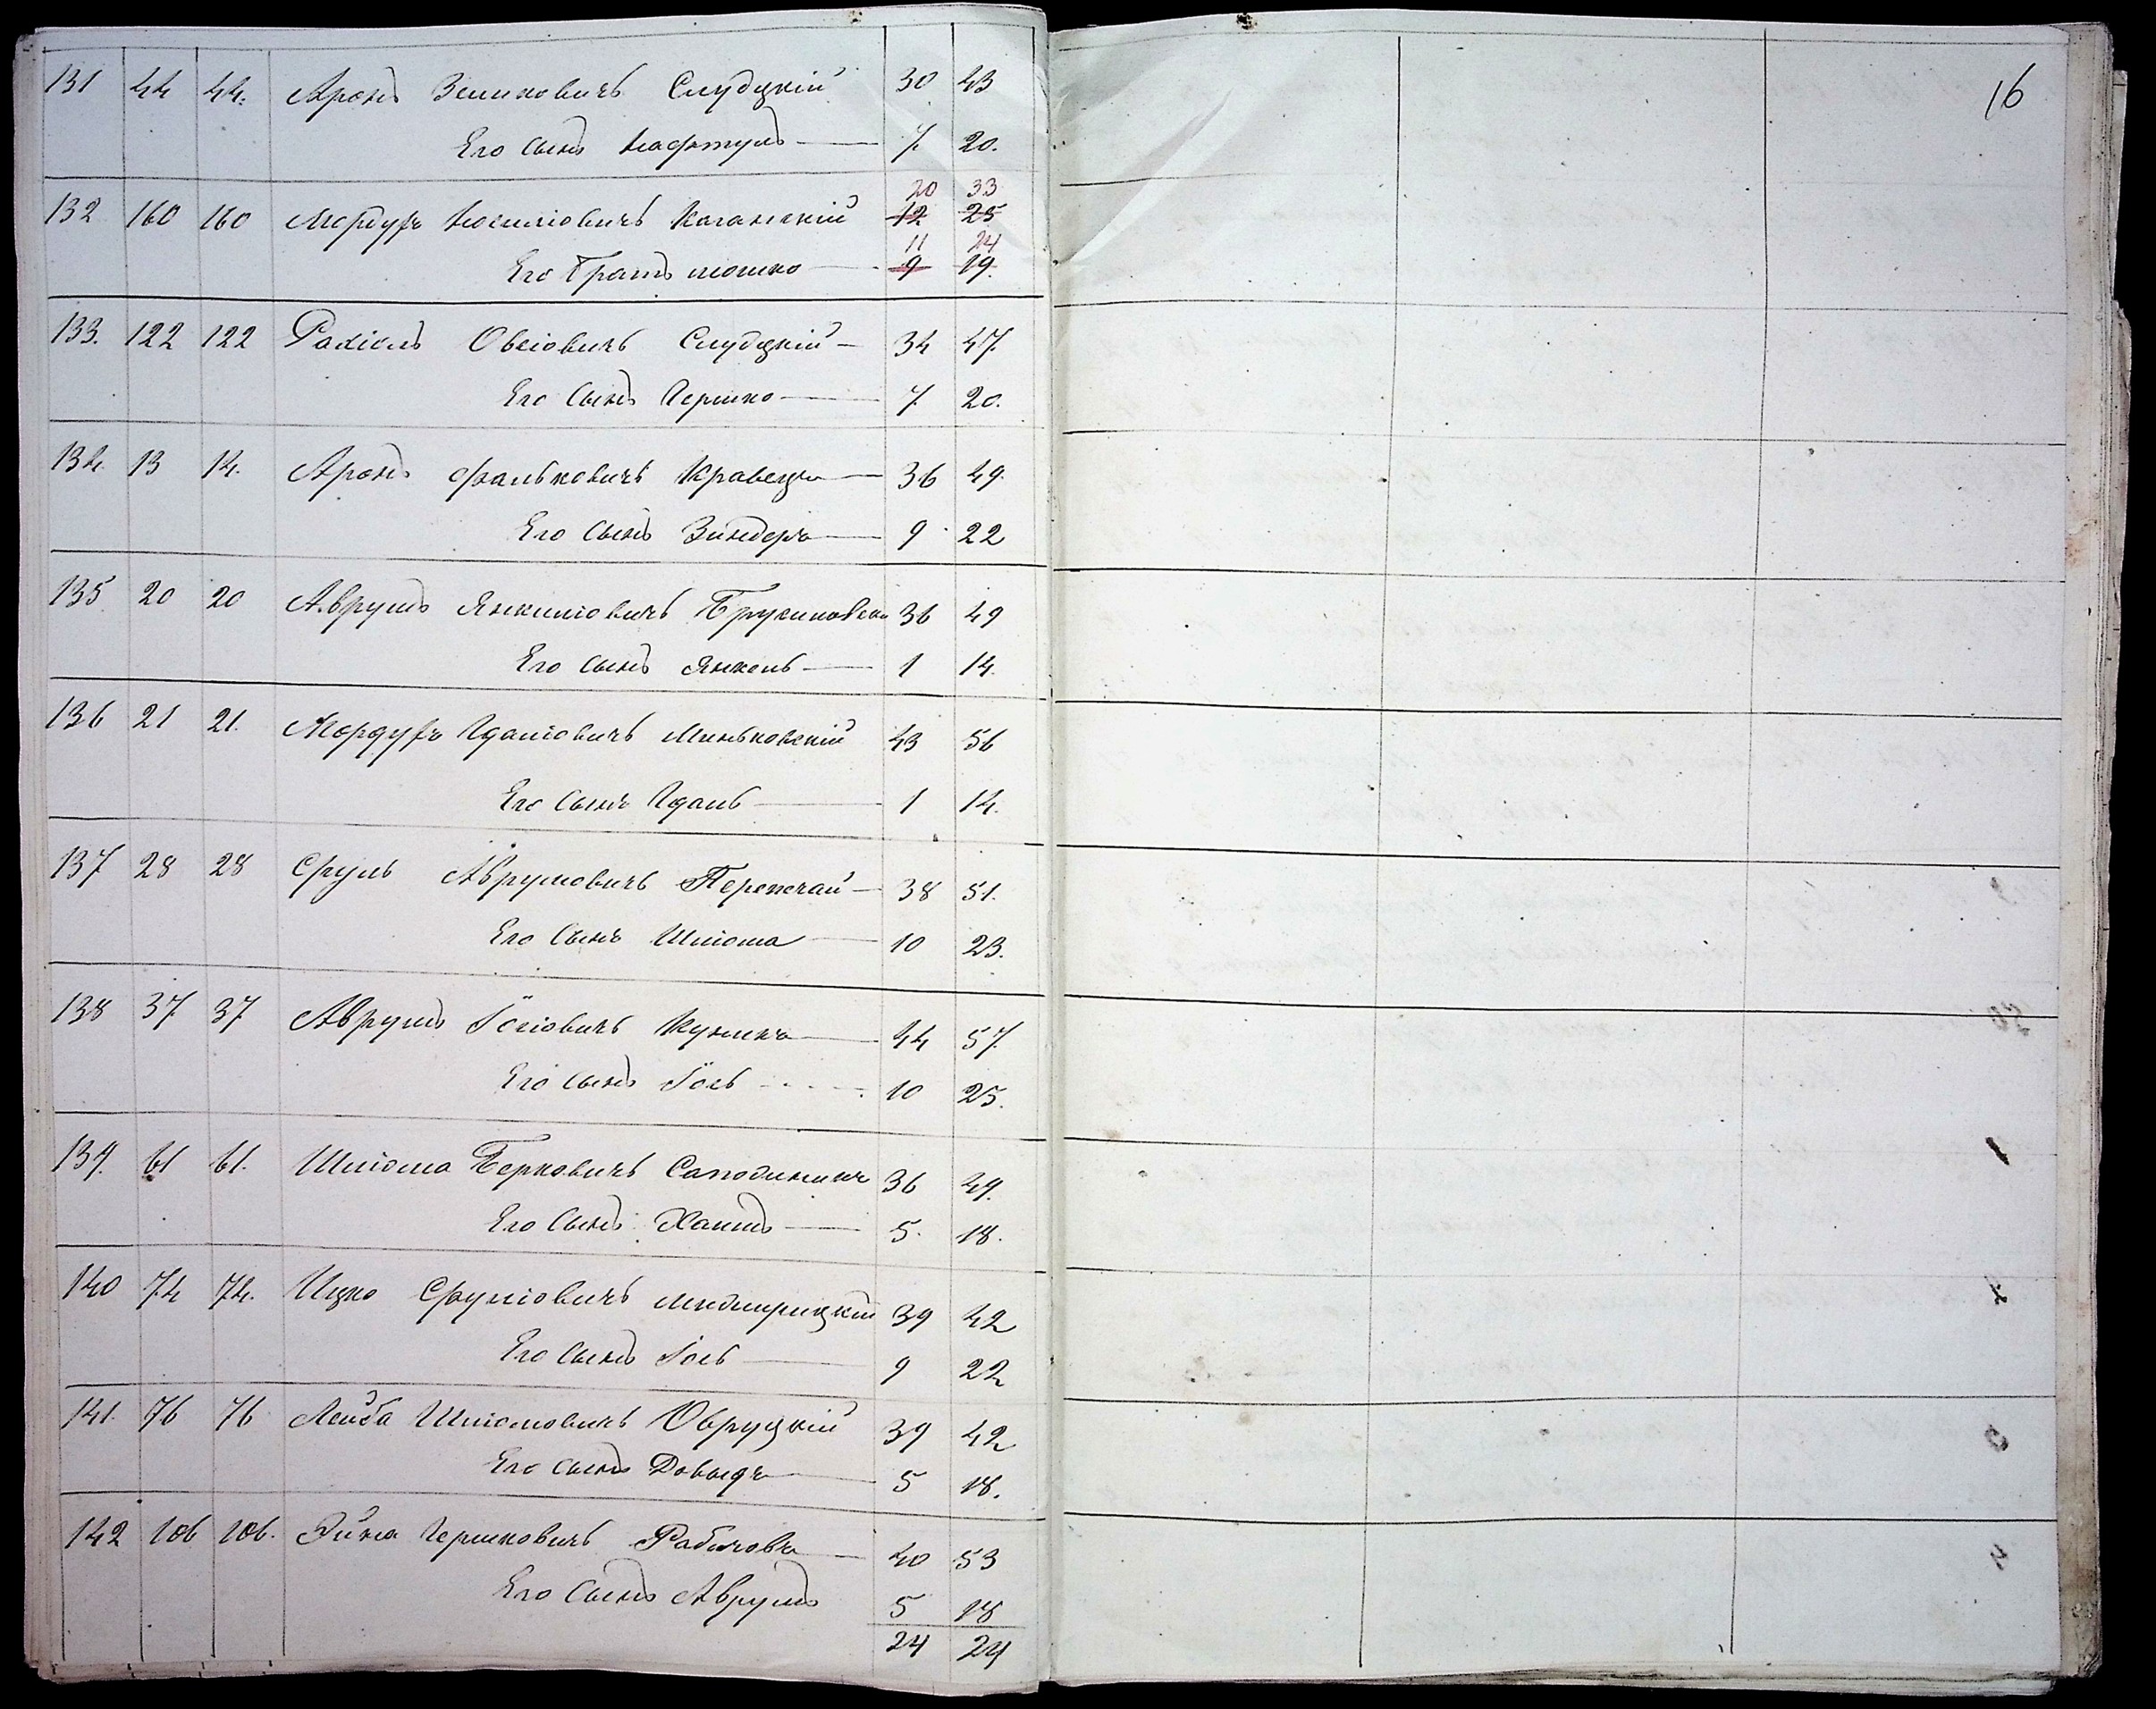 131 44 44. Аронъ Зелиховичъ Слудцкій 30 43
Его сынъ Нафтулъ 7. 20.
20 33
132 160 160 Мордухъ Іосиліовичъ Каганскій 12 25
11 24
Его Братъ мошко 9 19.
133. 122 122 Рахіель Овсіовичъ Слудцкій 34 47.
Его Сынъ Гершко 7. 20.
134. 13 14. Аронъ Фальковичъ Кравецъ 36 49.
Его Сынъ Зиндеръ 9 22
135 20 20 Аврумъ Янкиліовичъ 36 49
Его Сынъ Янкель 1 14.
136 21 21. Мордухъ Гдаліовичъ Миньковскій 43 56
Его Сынъ Гдаль 1 14.
137 28 28 Сруль Аврумовичъ 38 51.
Его Сынъ Шліома 10 23.
138 37 37 Аврумъ Іосіовичъ 44 57.
Его Сынъ Іось 10 25.
139. 61 61. Шліома Берковичъ 36 49.
Его Сынъ Хаимъ 5. 18.
140 74 74. Ицко Сруліовичъ Меджирицкій 39 42
Его Сынъ Іось 9 22
141. 76 76 Лейба Шліомовичъ Овруцкій 39 42
Его сынъ Довыдъ 5 18.
142 106 106. Гершковичъ 40 53
Его Сынъ Аврумъ 5 18
24 24
16